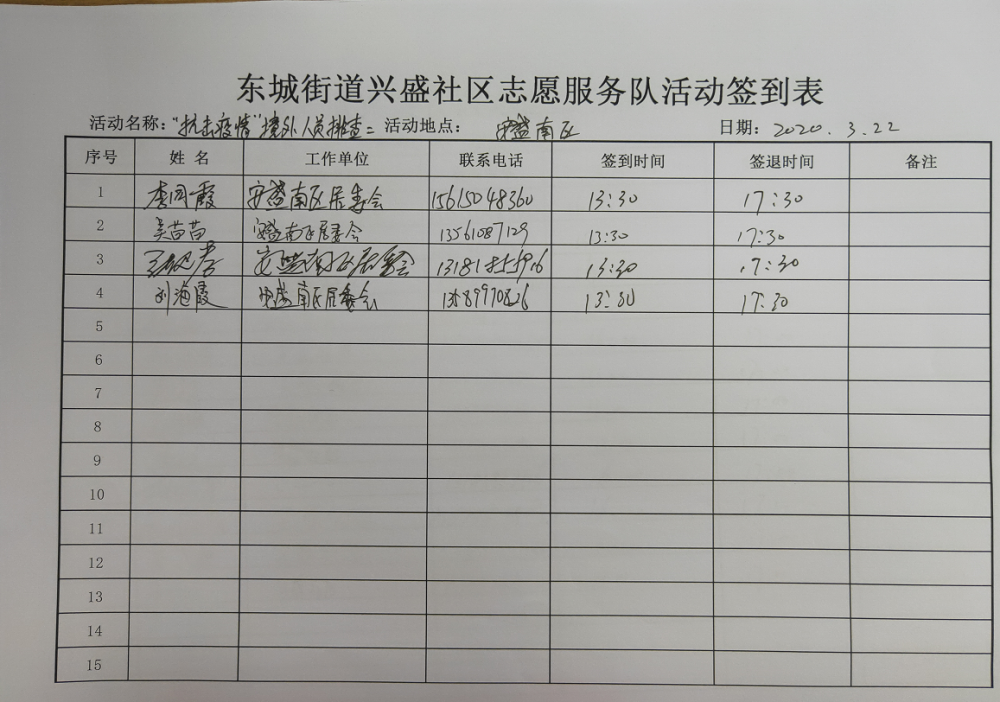 东城街道兴盛社区志愿服务队活动签到表
活动名称："抗击疫情"境外人员排查二 活动地点： 安盛南区 日期：2020.3.22
序号 姓名 工作单位 联系电话 签到时间 签退时间 备注
1 李同霞 安盛南区居委会 15615048360 13:30 17:30
2 吴苗苗 安盛南区居委会 13561087129 13:30 17:30
3 安盛南区居委会 13:30 17:30
4 刘海霞 安盛南区居委会 13:30 17:30
5
6
7
8
9
10
11
12
13
14
15